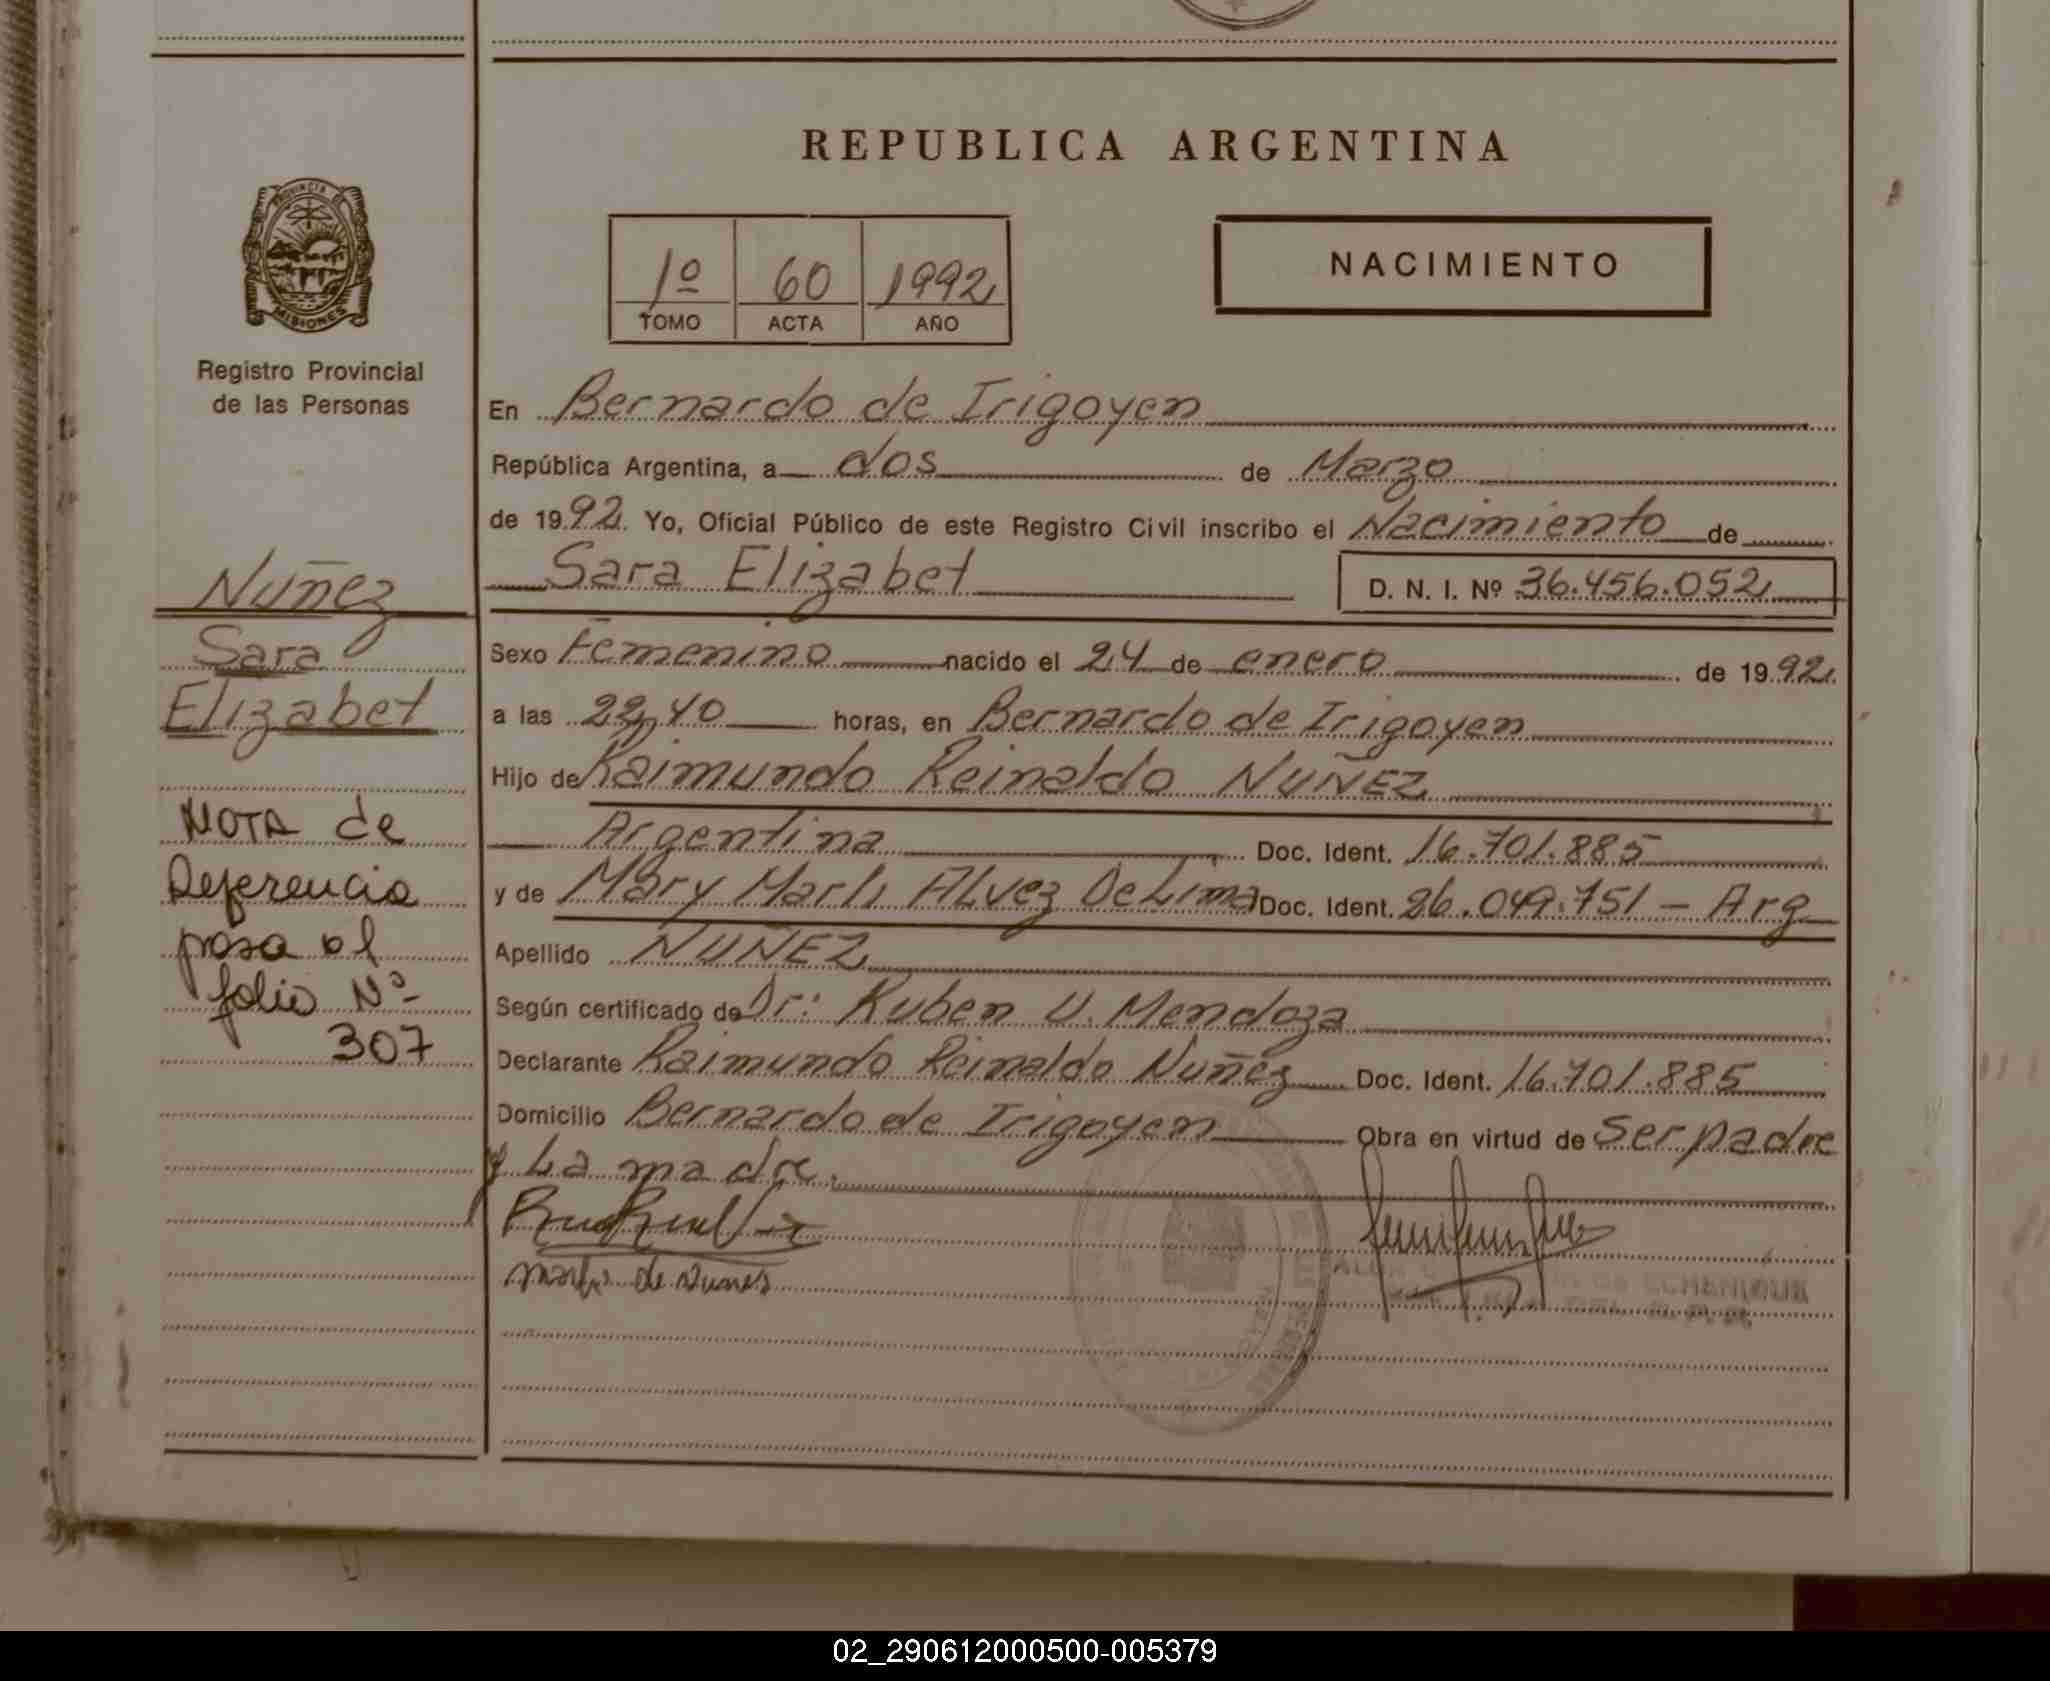 REPUBLICA ARGENTINA
PROVINCIA DE
MISIONES
Registro Provincial
de las Personas
1º 60 1992
TOMO ACTA AÑO
NACIMIENTO
En Bernardo de Irigoyen
República Argentina, a dos de Marzo
de 1992. Yo, Oficial Público de este Registro Civil inscribo el Nacimiento de
Sara Elizabet D. N. I. Nº 36.456.052
Sexo Femenino nacido el 24 de enero de 1992
a las 22,40 horas, en Bernardo de Irigoyen
Hijo de Raimundo Reinaldo NUÑEZ
Argentina Doc. Ident. 16.701.885
y de Mary Marli ALvez DeLima Doc. Ident. 26.049.751 - Arg
Apellido NUÑEZ
Según certificado de Dr: Ruben U. Mendoza
Declarante Raimundo Reinaldo Nuñez Doc. Ident. 16.701.885
Domicilio Bernardo de Irigoyen Obra en virtud de Ser padre
y La madre.
de Nunes
ECHENIQUE
Nuñez
Sara
Elizabet
NOTA de
Referencia
pasa al
folio Nº
307
02_290612000500-005379